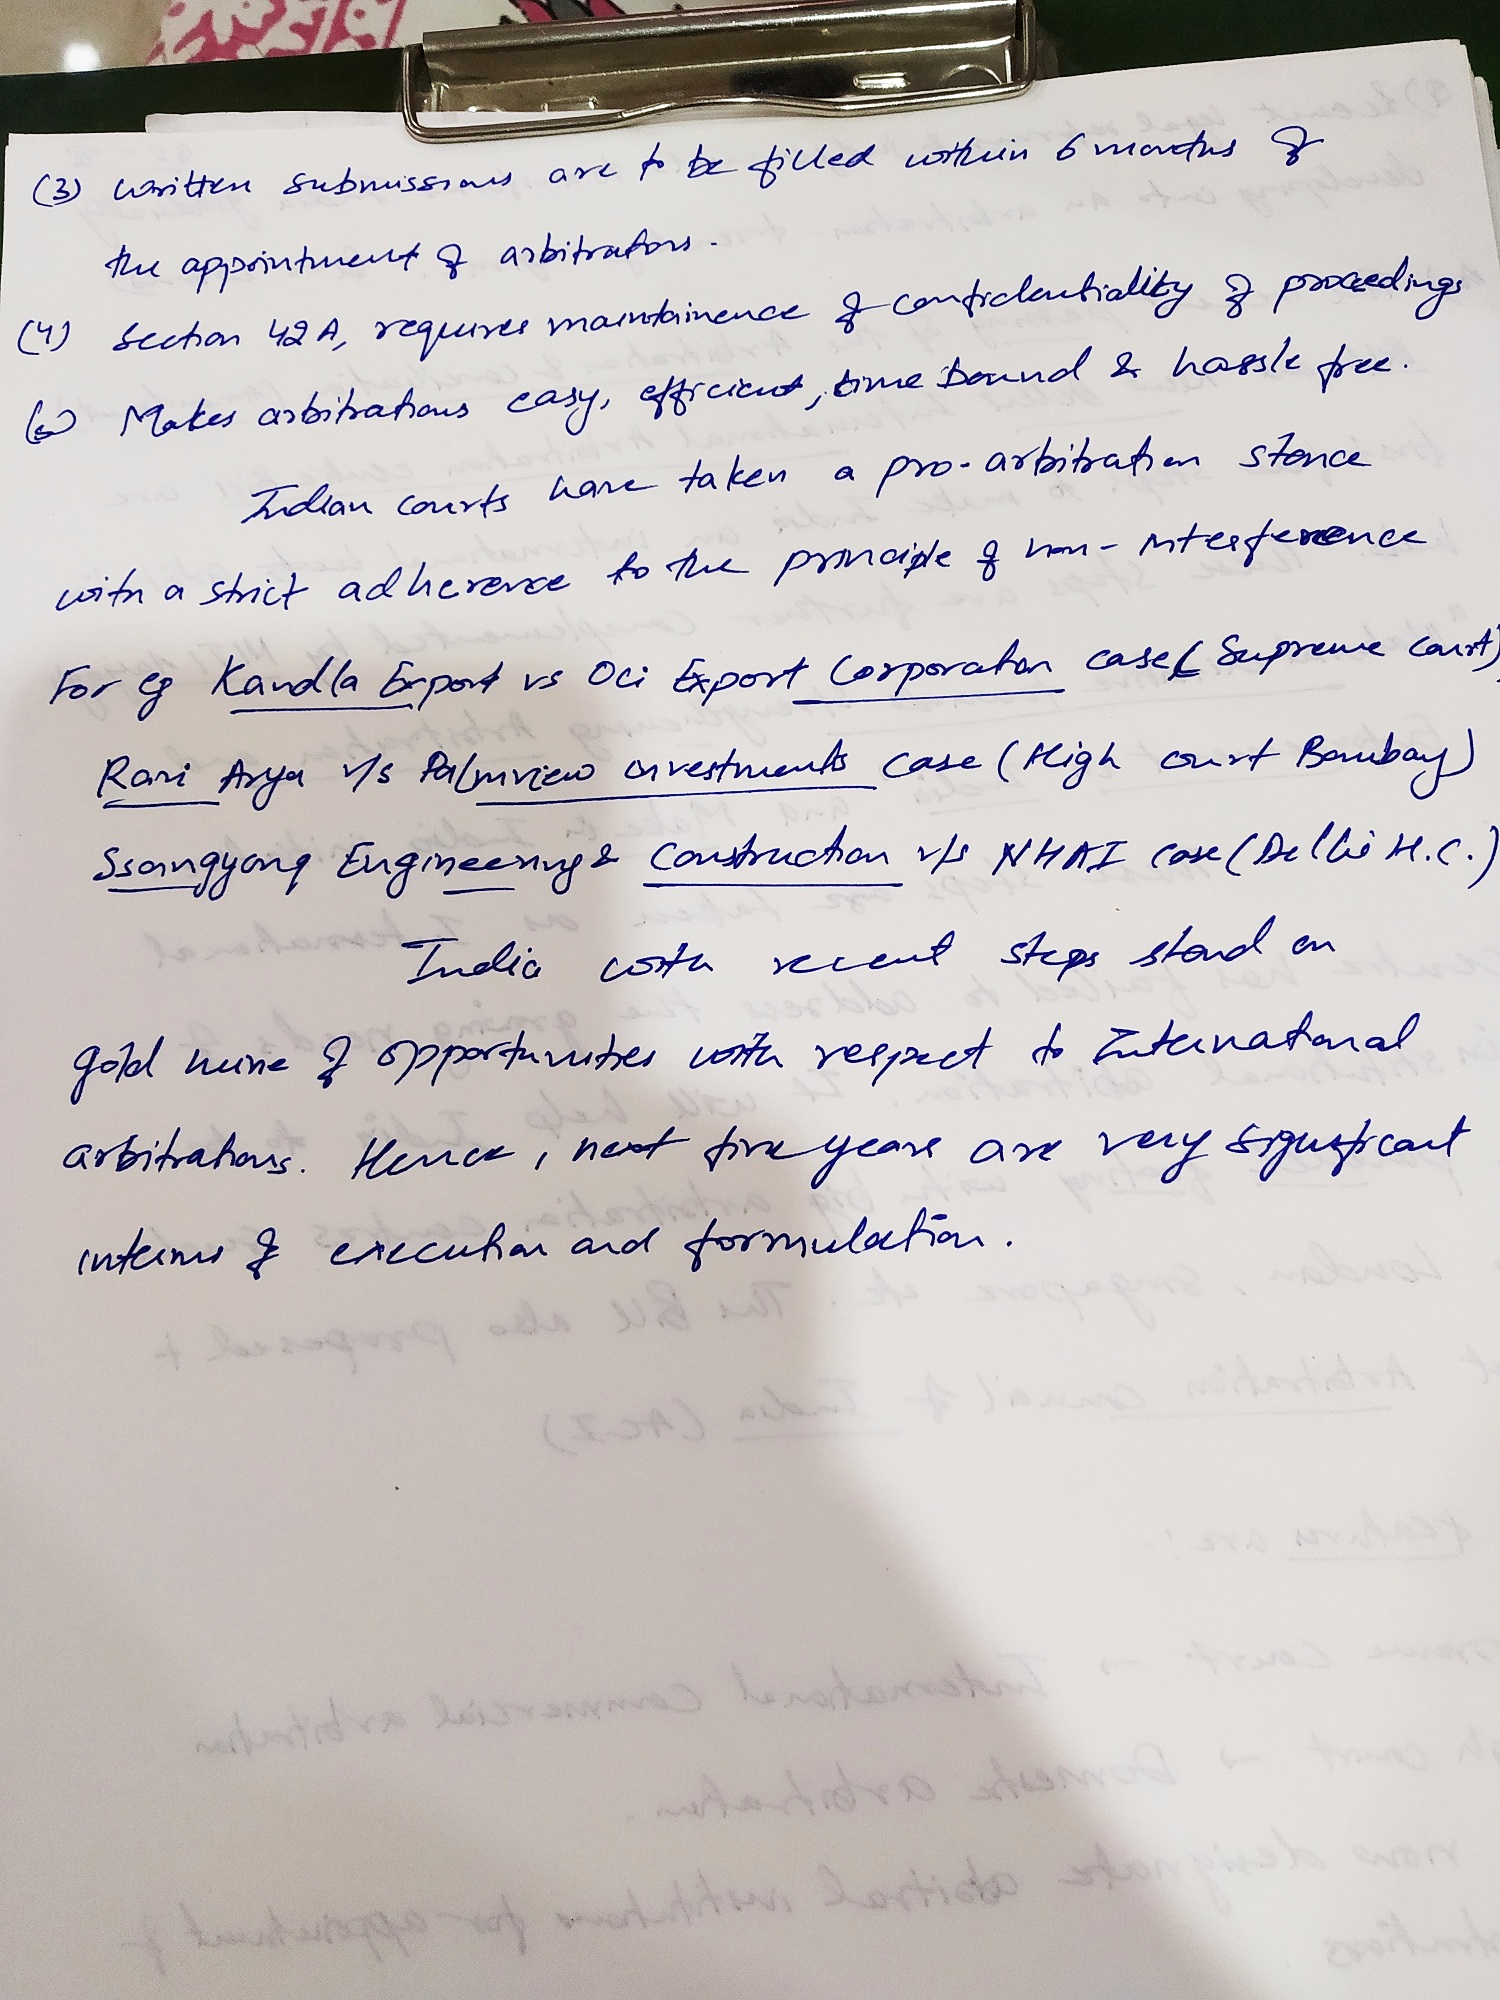 (3) written submissions are to be filled within 6 months of
the appointment of arbitrators.
(4) Section 42A, requires maintainence of confidentiality of proceedings
Makes arbitrations easy, efficient, time bound & hassle free.
Indian courts have taken a pro-arbitration stance
with a strict adherence to the principle of non-interference
For eg Kandla Export vs Oci Export Corporation case (Supreme Court)
Ravi Arya v/s Palmview investments case (High court Bombay)
Ssangyong Engineering & Construction v/s NHAI case (Delhi H.C.)
India with recent steps stand on
gold mine of opportunities with respect to International
arbitrations. Hence, next five years are very significant
interms of execution and formulation.